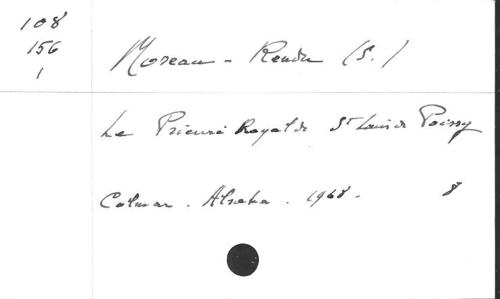 108
156
1
Moreau-Rendu (S.)
Le Prieuré Royal de St Louis de Poissy
Colmar. Alsatia. 1968. 8